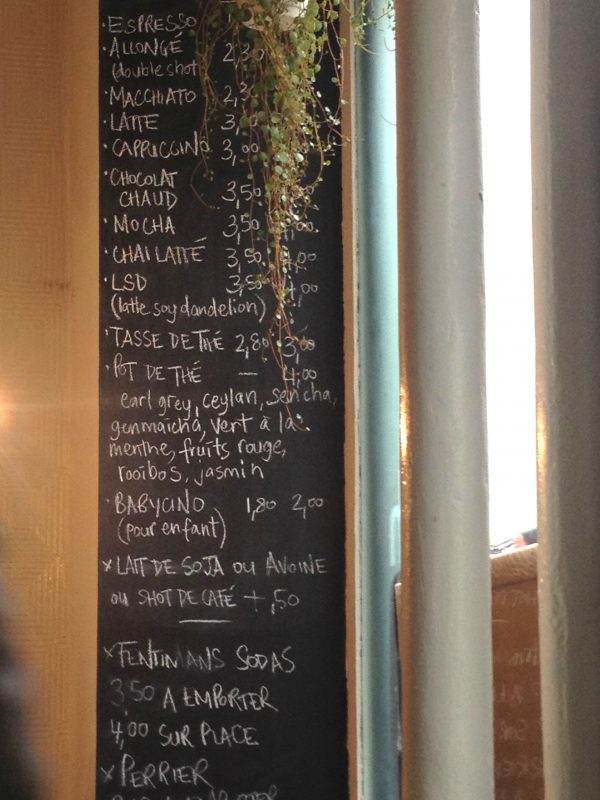 · ESPRESSO
· ALLONGÉ 2,30
(double shot
· MACCHIATO 2,30
· LATTE 3,
· CAPPUCCINO 3,00
· CHOCOLAT
CHAUD 3,50
· MOCHA 3,50 4,00
· CHAI LATTÉ 3,50 4,00
· LSD 3,50 4,00
(latte soy dandelion)
· TASSE DE THÉ 2,80 3,00
· POT DE THÉ — 4,00
earl grey, ceylan, sencha,
genmaicha, vert à la
menthe, fruits rouge,
rooïbos, jasmin
· BABYCINO 1,80 2,00
(pour enfant)
× LAIT DE SOJA ou AVOINE
ou SHOT DE CAFÉ +,50
× FENTIMANS SODAS
3,50 A EMPORTER
4,00 SUR PLACE
× PERRIER